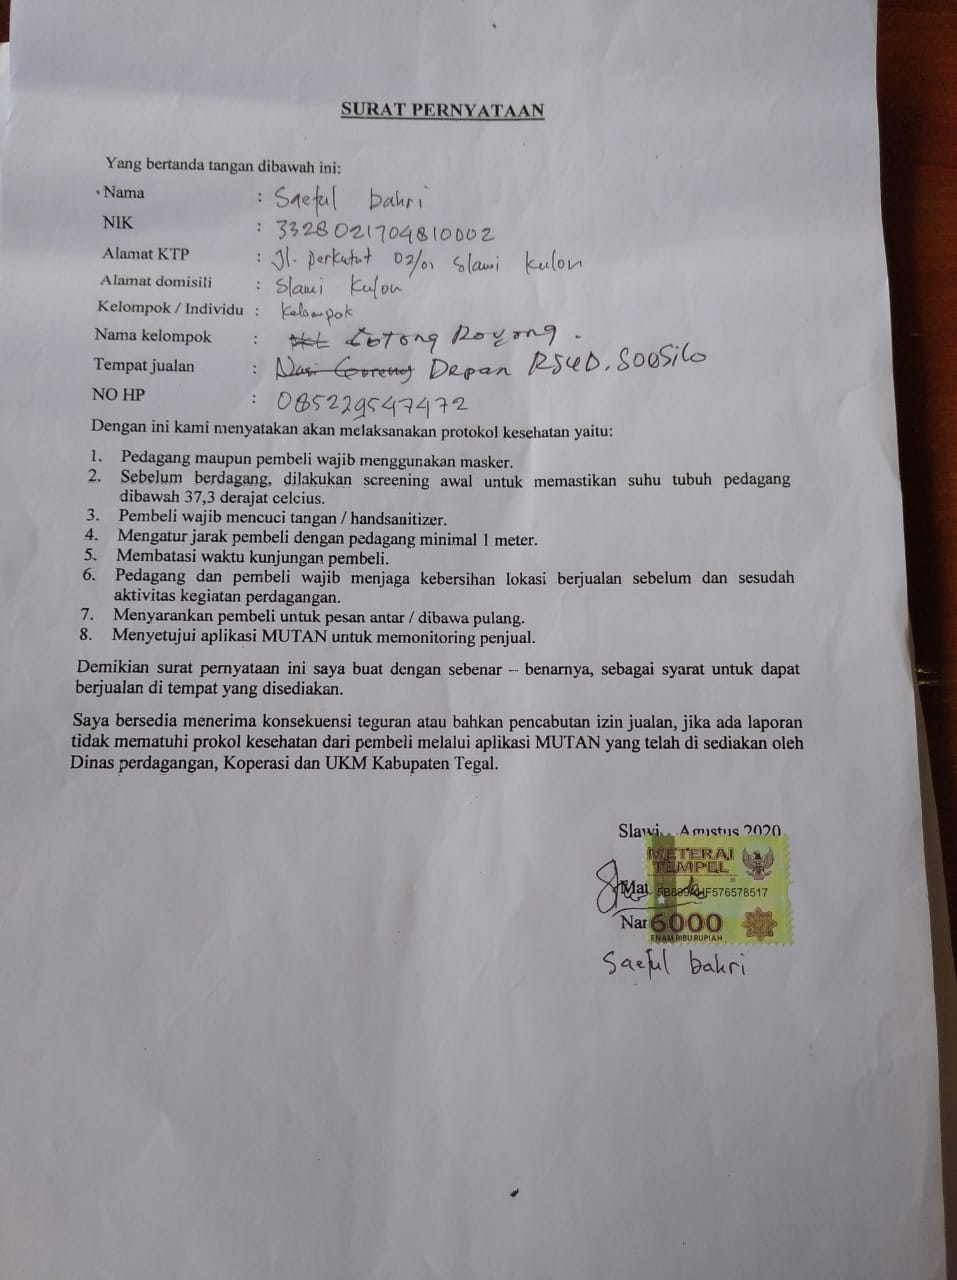 SURAT PERNYATAAN
Yang bertanda tangan dibawah ini:
Nama : Saeful bahri
NIK : 3328021704810002
Alamat KTP : Jl. perkutut 02/01 Slawi Kulon
Alamat domisili : Slawi Kulon
Kelompok / Individu : Kelompok
Nama kelompok : Gotong Royong.
Tempat jualan : Nasi Goreng Depan RSUD. SOESilo
NO HP : 085229547472
Dengan ini kami menyatakan akan melaksanakan protokol kesehatan yaitu:
1. Pedagang maupun pembeli wajib menggunakan masker.
2. Sebelum berdagang, dilakukan screening awal untuk memastikan suhu tubuh pedagang
dibawah 37,3 derajat celcius.
3. Pembeli wajib mencuci tangan / handsanitizer.
4. Mengatur jarak pembeli dengan pedagang minimal 1 meter.
5. Membatasi waktu kunjungan pembeli.
6. Pedagang dan pembeli wajib menjaga kebersihan lokasi berjualan sebelum dan sesudah
aktivitas kegiatan perdagangan.
7. Menyarankan pembeli untuk pesan antar / dibawa pulang.
8. Menyetujui aplikasi MUTAN untuk memonitoring penjual.
Demikian surat pernyataan ini saya buat dengan sebenar – benarnya, sebagai syarat untuk dapat
berjualan di tempat yang disediakan.
Saya bersedia menerima konsekuensi teguran atau bahkan pencabutan izin jualan, jika ada laporan
tidak mematuhi prokol kesehatan dari pembeli melalui aplikasi MUTAN yang telah di sediakan oleh
Dinas perdagangan, Koperasi dan UKM Kabupaten Tegal.
Slawi, Agustus 2020
METERAI
TEMPEL
Mat
Nar 6000
ENAM RIBU RUPIAH
Saeful bahri